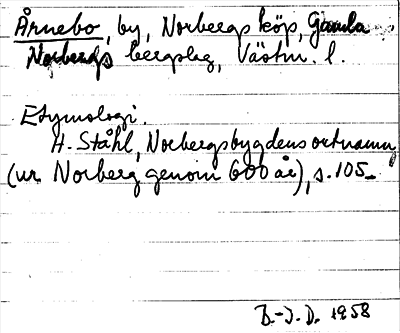 Årnebo, by, Norbergs köp, Gamla
Norbergs bergslag, Västm. l.
Etymologi.
H. Ståhl, Norbergsbygdens ortnamn
(ur Norberg genom 600 år), s. 105.
B.-J. D. 1958